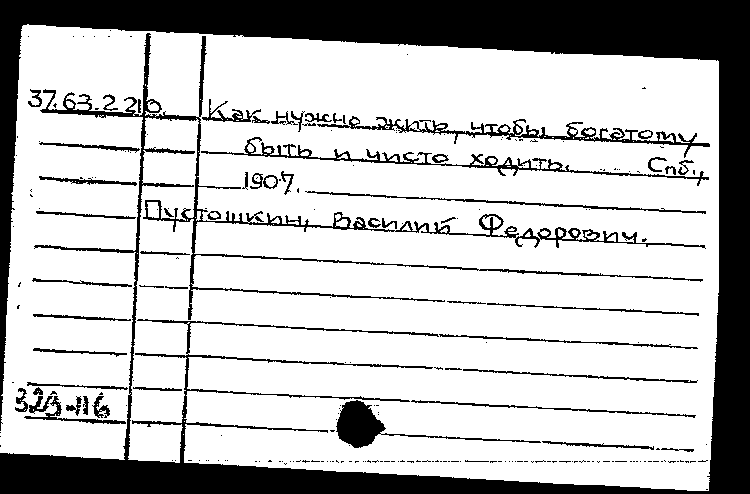 37.63.2.210. Как нужно жить, чтобы богатому
быть и чисто ходить. Спб.,
1907.
Пустошкин, Василий Федорович.
323-116